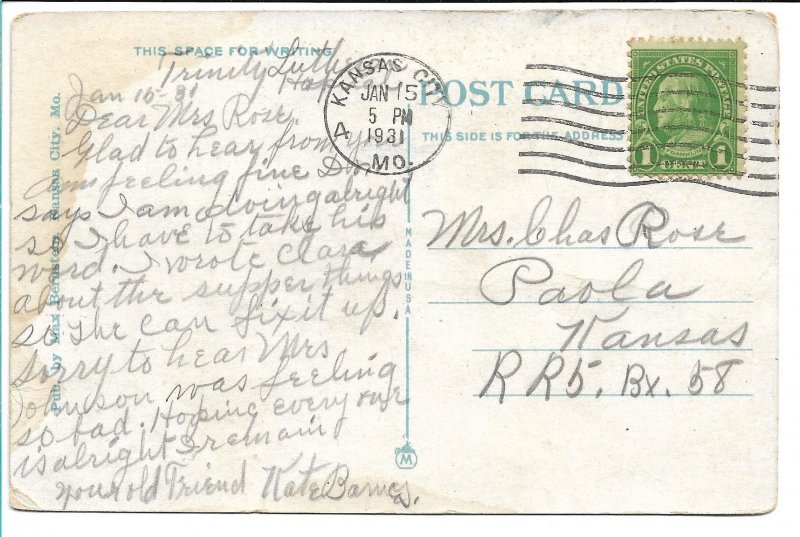 THIS SPACE FOR WRITING
Trinity Luthe
Jan 15-31
Dear Mrs Rose.
Glad to hear from you
Am feeling fine Doc
says I am doing alright
so I have to take his
word. I wrote Clara
about the supper things
so she can fix it up.
Sorry to hear Mrs
Johnson was feeling
so bad. Hoping every one
is alright I remain
your old Friend Kate Barnes.
Pub. by Max Bernstein, Kansas City, Mo.
MADE IN USA
M
KANSAS CITY
JAN 15
5 PM
1931
MO.
A
POST CARD
THIS SIDE IS FOR THE ADDRESS
UNITED STATES POSTAGE
FRANKLIN
1 1
Mrs. Chas Rose
Paola
Kansas
R R 5. Bx. 58